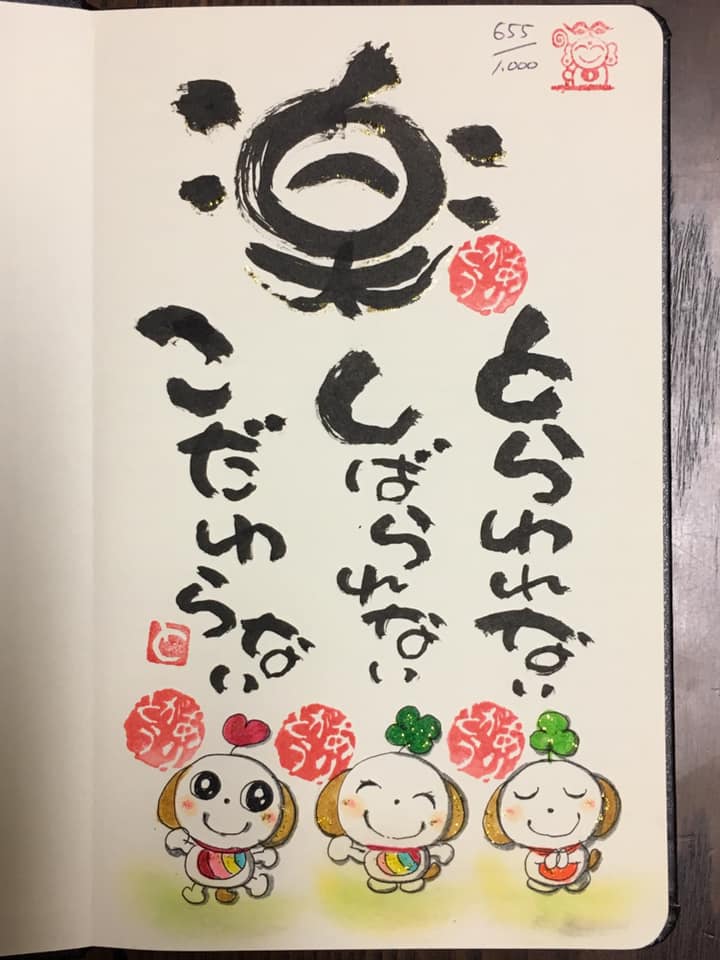 655
1.000
楽
とらわれない
しばられない
こだわらない